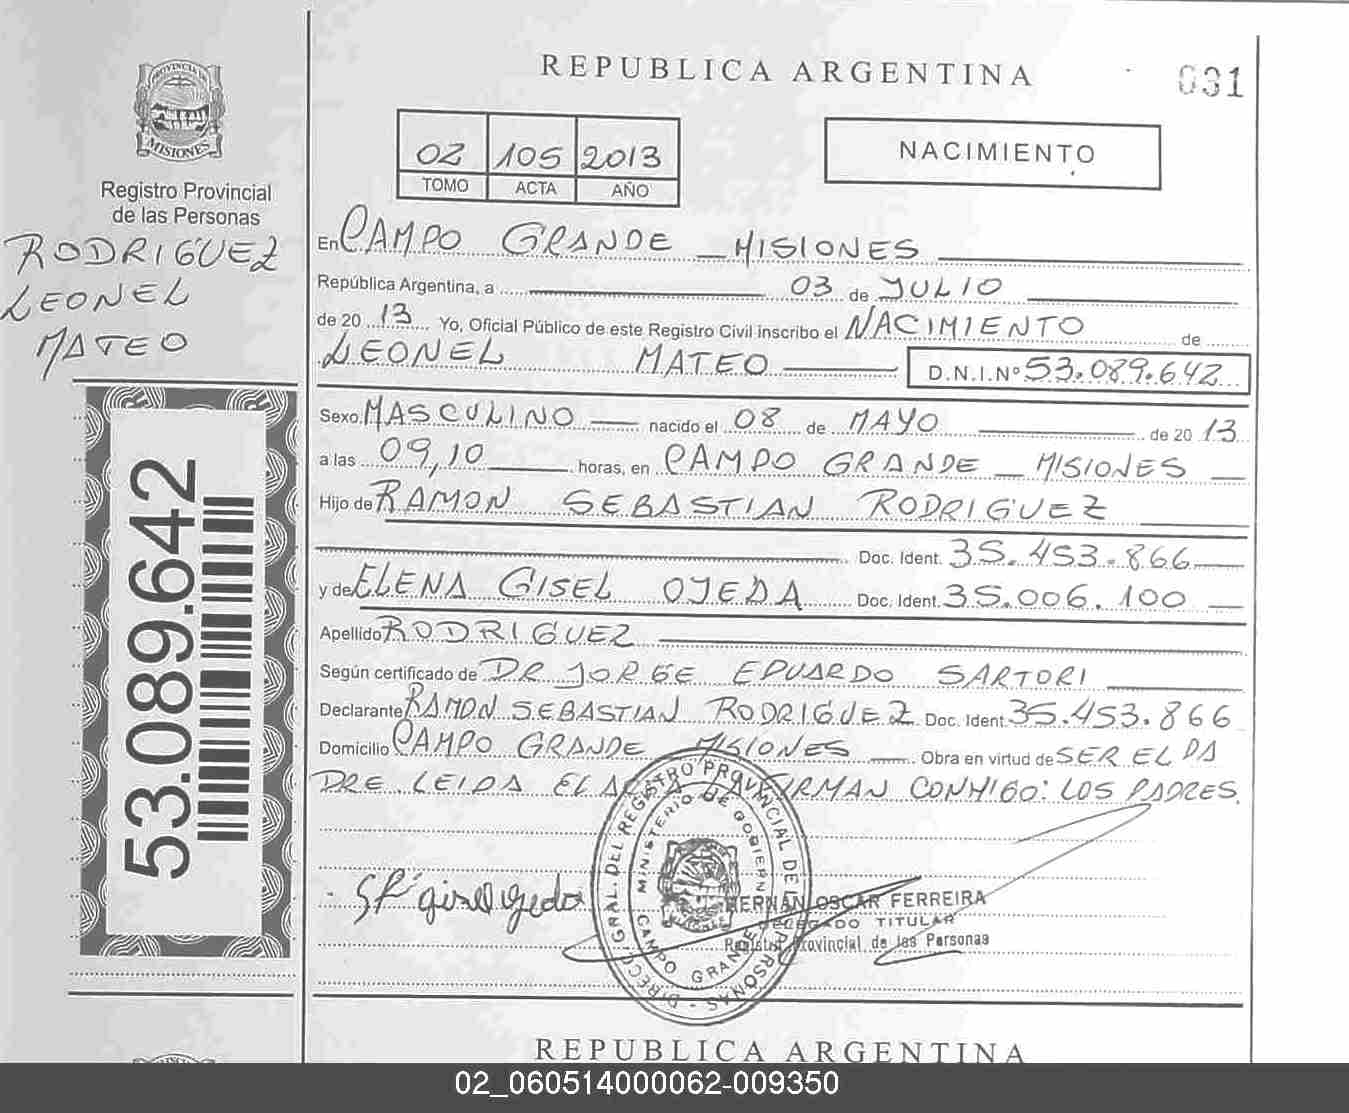 REPUBLICA ARGENTINA
031
PROVINCIA DE
MISIONES
Registro Provincial
de las Personas
RODRIGUEZ
LEONEL
MATEO
53.089.642
02 105 2013
TOMO ACTA AÑO
NACIMIENTO
En CAMPO GRANDE - MISIONES
República Argentina, a 03 de JULIO
de 20 13 Yo, Oficial Público de este Registro Civil inscribo el NACIMIENTO de
LEONEL MATEO D.N.I.Nº 53.089.642
Sexo MASCULINO nacido el 08 de MAYO de 20 13
a las 09,10 horas, en CAMPO GRANDE - MISIONES
Hijo de RAMON SEBASTIAN RODRIGUEZ
Doc. Ident. 35.453.866
y de ELENA GISEL OJEDA Doc. Ident. 35.006.100
Apellido RODRIGUEZ
Según certificado de DR JORGE EDUARDO SARTORI
Declarante RAMON SEBASTIAN RODRIGUEZ Doc. Ident. 35.453.866
Domicilio CAMPO GRANDE MISIONES Obra en virtud de SER EL PA
DRE. LEIDA EL ACTA LA FIRMAN CONMIGO: LOS PADRES.
DIRECC. GRAL. DEL REGISTRO PROVINCIAL DE LAS PERSONAS -
MINISTERIO DE GOBIERNO
CAMPO GRANDE
gisel ojeda
HERNAN OSCAR FERREIRA
DELEGADO TITULAR
Registro Provincial de las Personas
REPUBLICA ARGENTINA
02_060514000062-009350